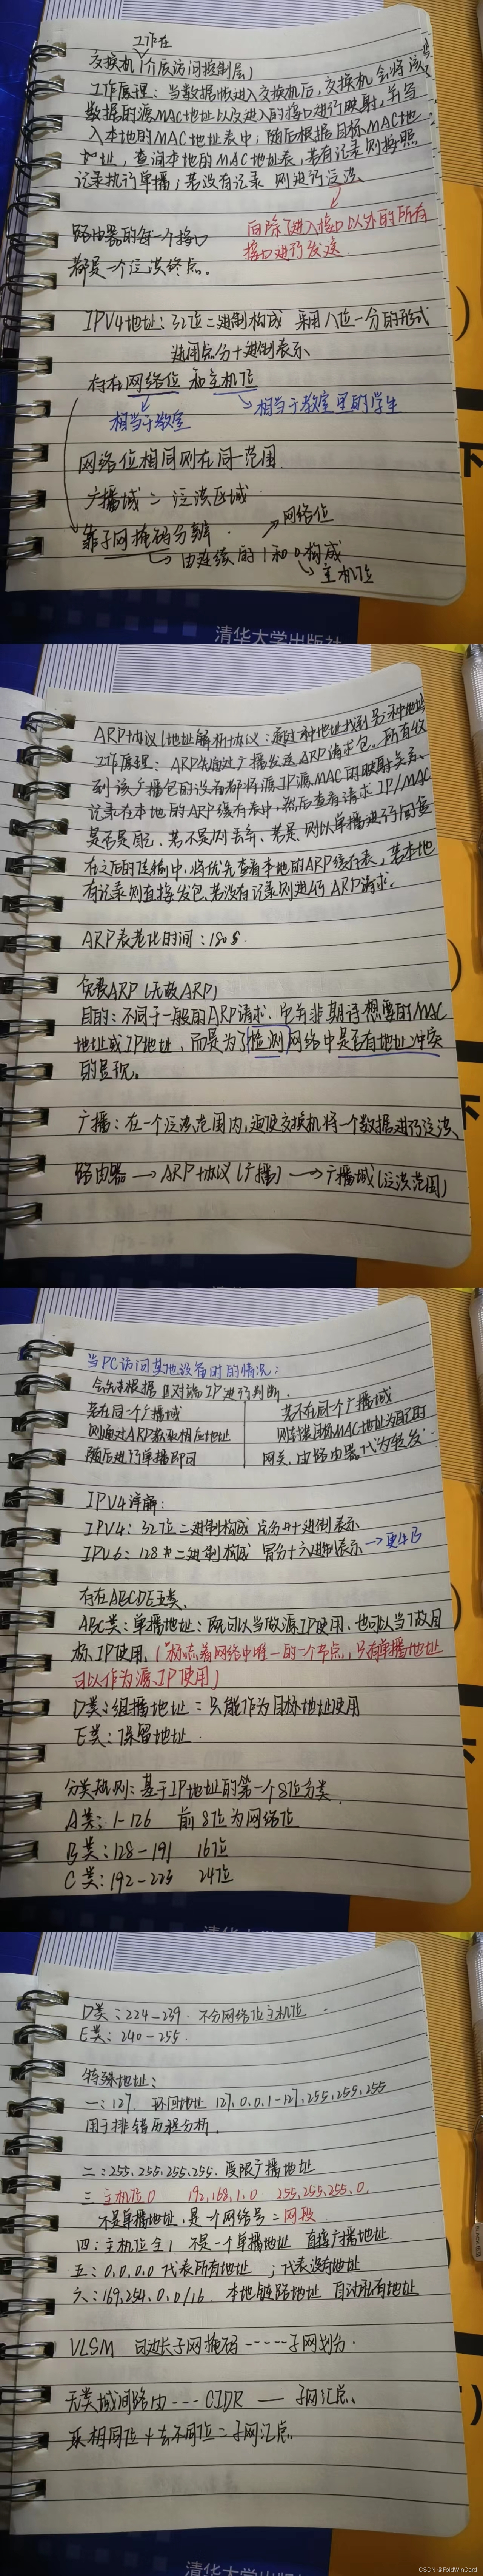 工作在
交换机(介质访问控制层)
工作原理:当数据帧进入交换机后,交换机会将该
数据的源MAC地址以及进入的接口进行映射,并写
入本地的MAC地址表中;随后根据目标MAC地
址,查询本地的MAC地址表,若有记录则按照
记录执行单播;若没有记录 则进行泛洪
向除了进入接口以外的所有
接口进行发送.
路由器的每一个接口
都是一个泛洪终点。
IPV4地址:32位二进制构成 采用八位一分的形式
运用点分十进制表示
存在网络位 和主机位
相当于教室
相当于教室里的学生
网络位相同则在同一范围.
广播域=泛洪区域.
靠子网掩码分辨.
网络位
由连续的1和0构成
主机位
清华大学出版社
ARP协议(地址解析协议:通过一种地址找到另一种地址
工作原理:ARP先通过广播发送ARP请求包,所有收
到该广播包的设备都将源IP源MAC的映射关系
记录在本地的ARP缓存表中,然后查看请求IP/MAC
是否是自己,若不是则丢弃、若是,则以单播进行回复
在之后的传输中,将优先查看本地的ARP缓存表,若本地
有记录则直接发包、若没有记录则进行ARP请求.
ARP表老化时间:180s.
免费ARP(无故ARP)
目的:不同于一般的ARP请求,它并非期待想要的MAC
地址或IP地址,而是为了检测网络中是否有地址冲突
的显现。
广播:在一个泛洪范围内,迫使交换机将一个数据进行泛洪、
路由器→ARP协议(广播)→广播域(泛洪范围)
当PC访问某地设备时的情况:
会先根据 对端IP进行判断.
若在同一个广播域
则通过ARP获取相应地址
随后进行单播即可
若不在同一个广播域
则 目标MAC地址为配的
网关,由路由器代为转发
IPV4详解:
IPV4:32位二进制构成 点分十进制表示
IPV6:128位二进制构成 冒分十六进制表示→
存在ABCDE五类、
ABC类:单播地址:既可以当做源IP使用,也可以当做目
标IP使用.(标志着网络中唯一的一个节点,只有单播地址
可以作为源IP使用)
D类:组播地址:只能作为目标地址使用
E类:保留地址.
分类规则:基于IP地址的第一个8位分类
A类:1-126 前8位为网络位
B类:128-191 16位
C类:192-223 24位
D类:224-239 不分网络位主机位
E类:240-255.
特殊地址:
一:127 环回地址 127.0.0.1-127.255.255.255
用于排错 分析.
二:255.255.255.255.受限广播地址
三 主机位0 192.168.1.0 255.255.255.0.
不是单播地址,是一个网络号=网段
四:主机位全1 不是一个单播地址 直接广播地址
五:0.0.0.0 代表所有地址 ;代表没有地址
六:169.254.0.0/16 本地链路地址 自动私有地址
VLSM 可变长子网掩码-----子网划分.
无类域间路由---CIDR—子网汇总、
取相同位 去不同位=子网汇总
清华大学出版
CSDN @FoldWinCard